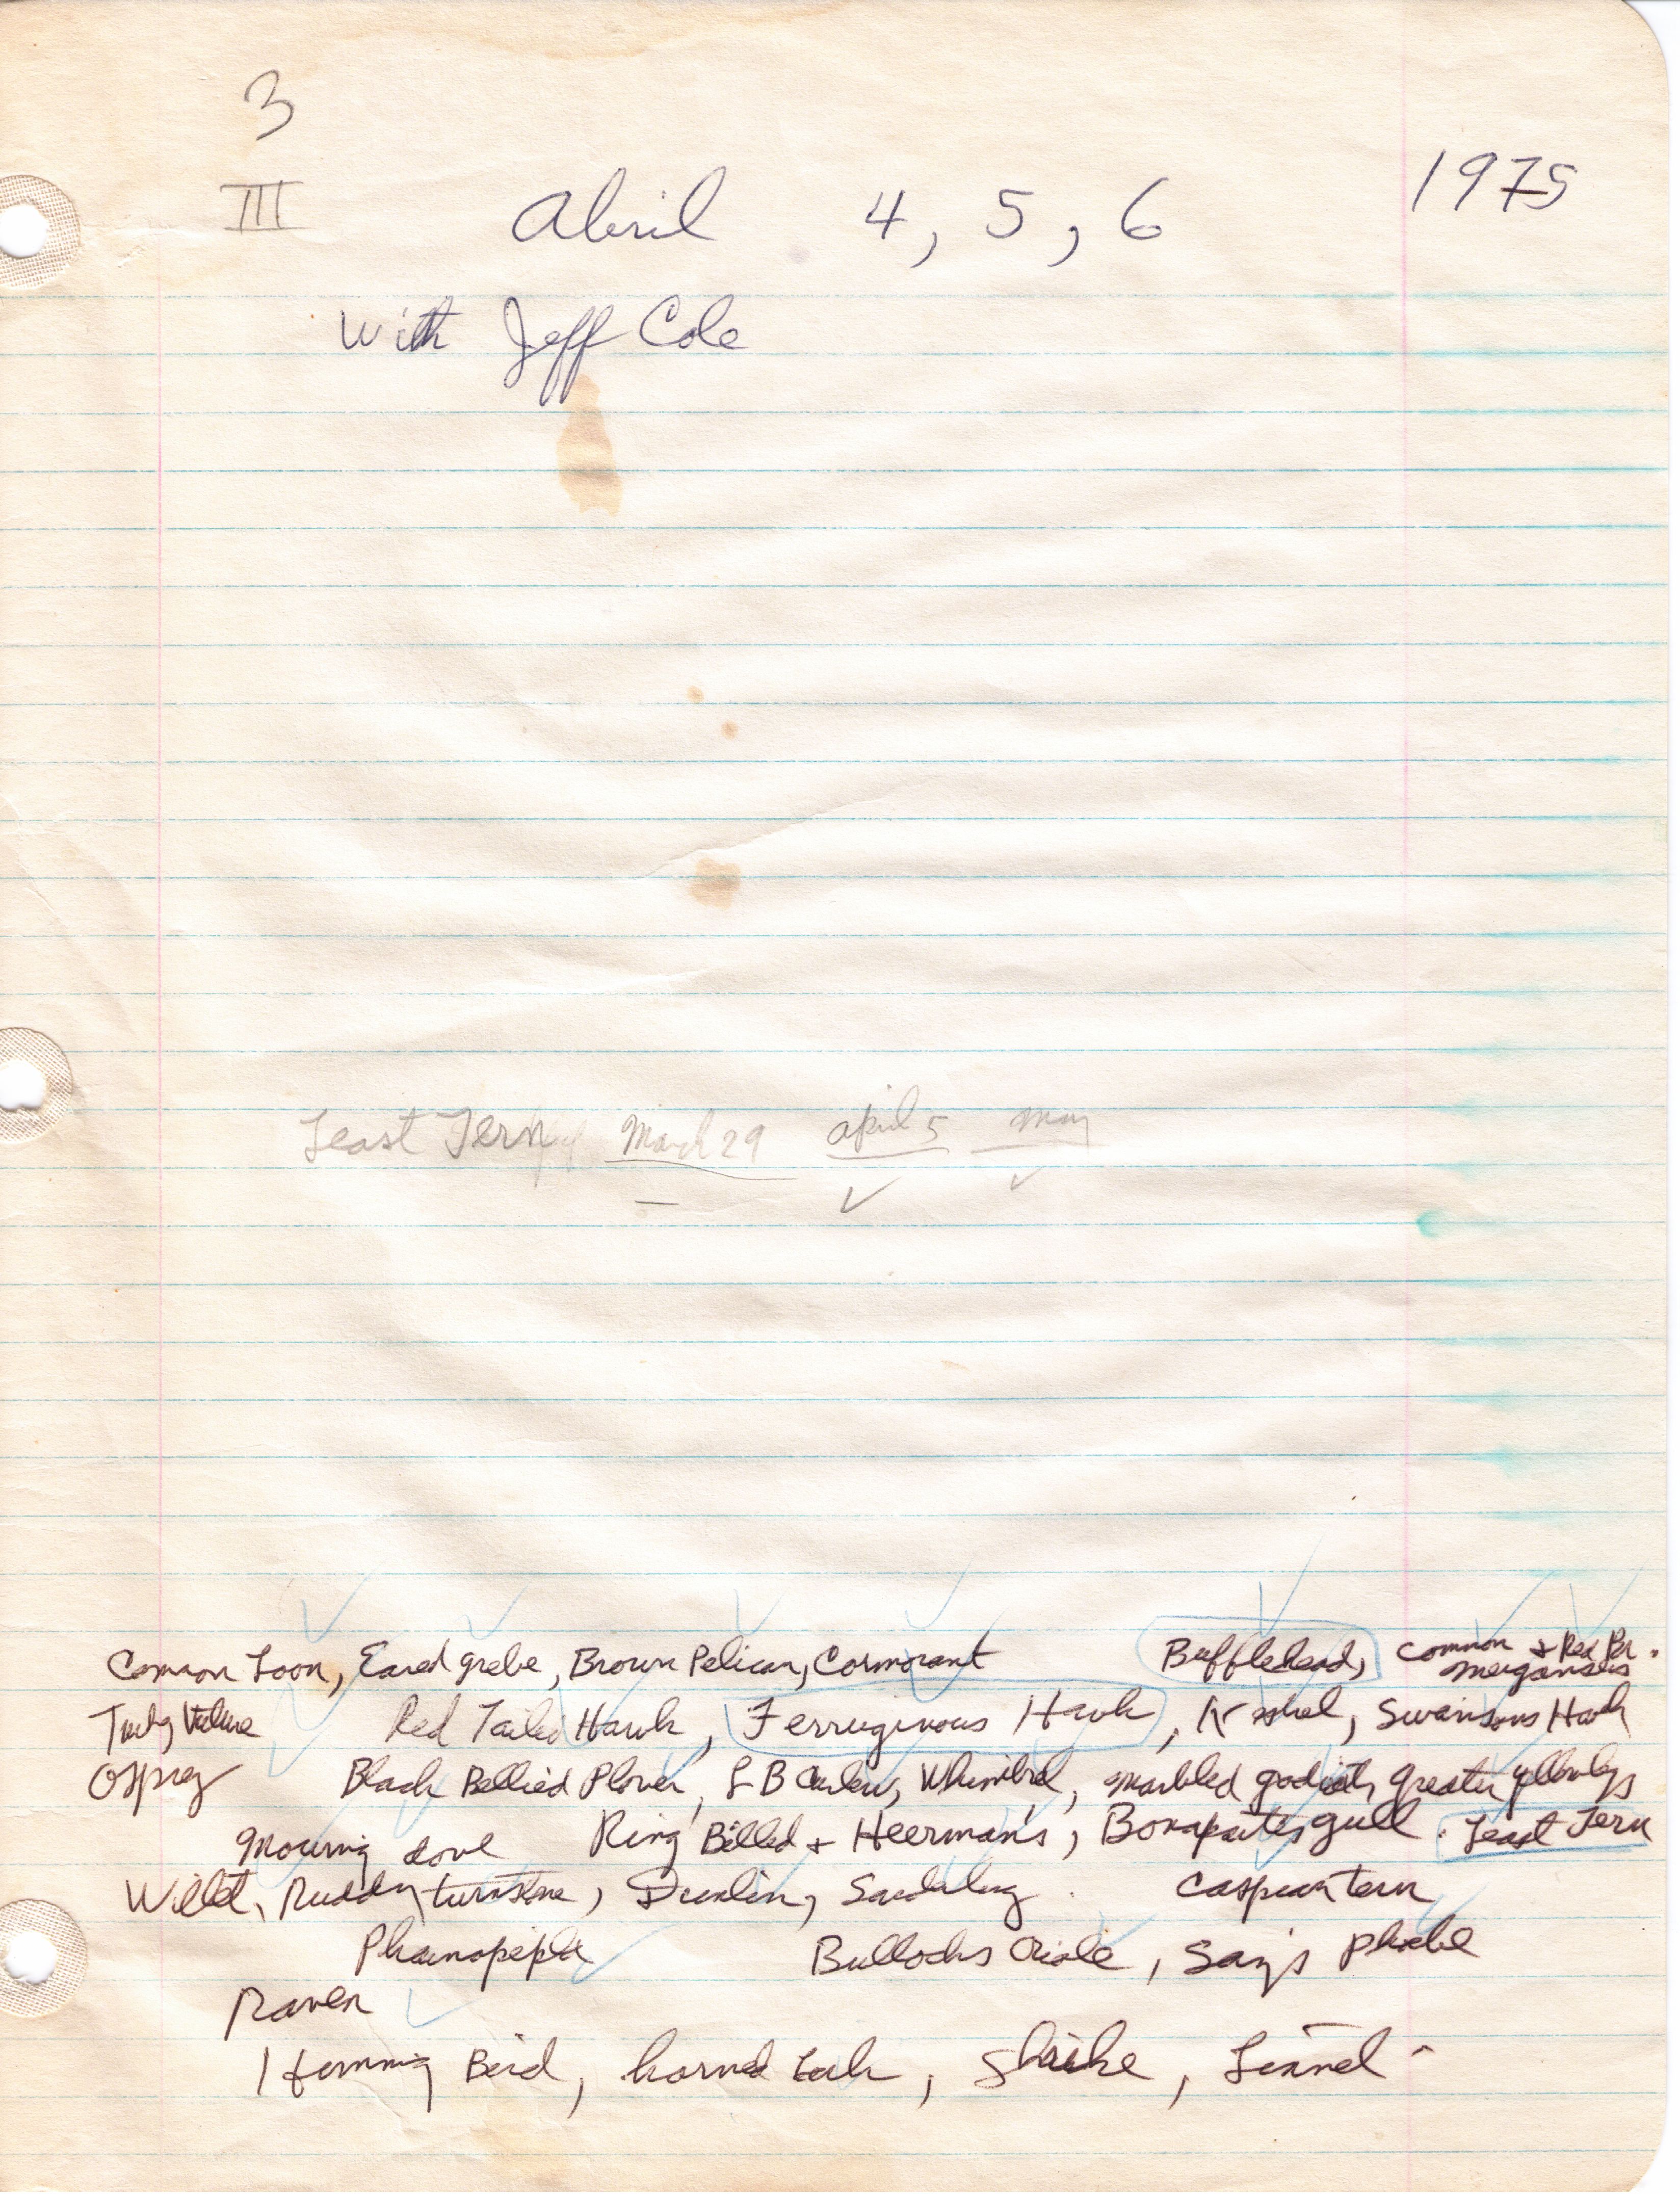 3
III Abril 4, 5, 6 1975
With Jeff Cole
Least Tern March 29 april 5 may
— ✓ ✓
Common Loon, Eared grebe, Brown Pelican, Cormorant Bufflehead, Common + Red Br. mergansers
Turky Vulture Red Tailed Hawk, Ferruginous Hawk, Kestrel, Swansons Hawk
Osprey Black Bellied Plover, LB Curlew, Whimbrel, marbled godwit, greater yellowlegs
Mourning dove Ring Billed + Heerman's, Bonapartes gull. Least Tern
Willet, Ruddy turnstone, Dunlin, Sanderling. Caspian tern
Phainopepla Bullocks Oriole, Say's phoebe
Raven
Humming Bird, horned lark, Shrike, Linnet